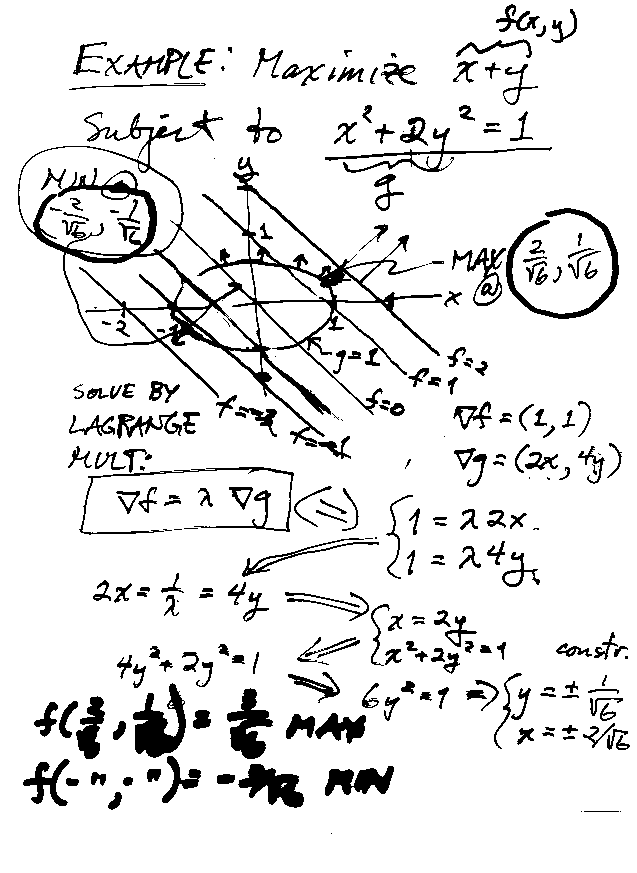 f(x,y)
EXAMPLE: Maximize x+y
Subject to x² + 2y² = 1
g
MIN @
-2/√6, -1/√6
y
1
MAX @ 2/√6, 1/√6
x
-2
-1
1
g=1
f=2
f=1
f=0
f=-2
f=-1
SOLVE BY
LAGRANGE
MULT:
∇f = (1, 1)
∇g = (2x, 4y)
∇f = λ ∇g ⇔ { 1 = λ2x
1 = λ4y
2x = 1/λ = 4y ⇒ { x = 2y
x² + 2y² = 1 constr.
4y² + 2y² = 1
⇒ 6y² = 1 ⇒ { y = ± 1/√6
x = ± 2/√6
f(2/√6, 1/√6) = 3/√6 MAX
f(- ", - ") = -3/√6 MIN